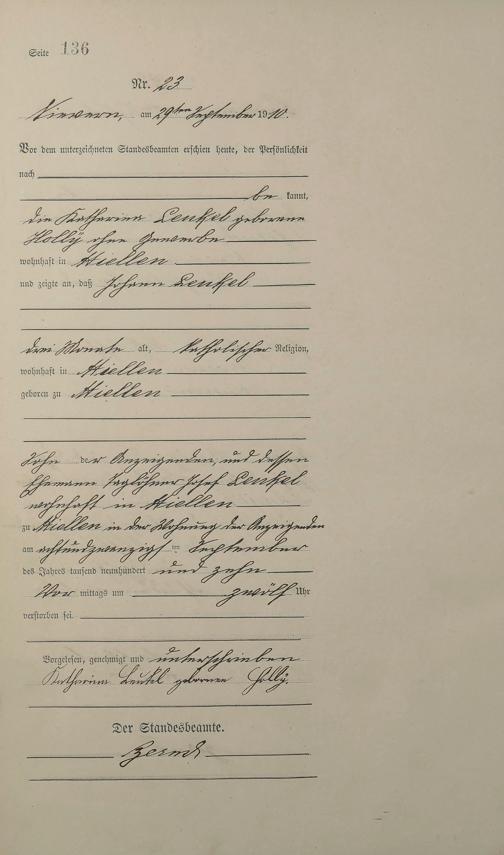 Seite 136
Nr. 23
Nievern, am 29ten September 1910.
Vor dem unterzeichneten Standesbeamten erschien heute, der Persönlichkeit
nach
be kannt,
die Katharina Leukel geborene
Holly ohne Gewerbe
wohnhaft in Miellen
und zeigte an, daß Johann Leukel
drei Monate alt, katholischer Religion,
wohnhaft in Miellen
geboren zu Miellen
Sohn der Anzeigenden, und dessen
Ehemann Taglöhner Josef Leukel
wohnhaft in Miellen
zu Miellen in der Wohnung der Anzeigenden
am achtundzwanzigsten September
des Jahres tausend neunhundert und zehn
Vor mittags um zwölf Uhr
verstorben sei.
Vorgelesen, genehmigt und unterschrieben
Katharina Leukel geborenen Holly.
Der Standesbeamte.